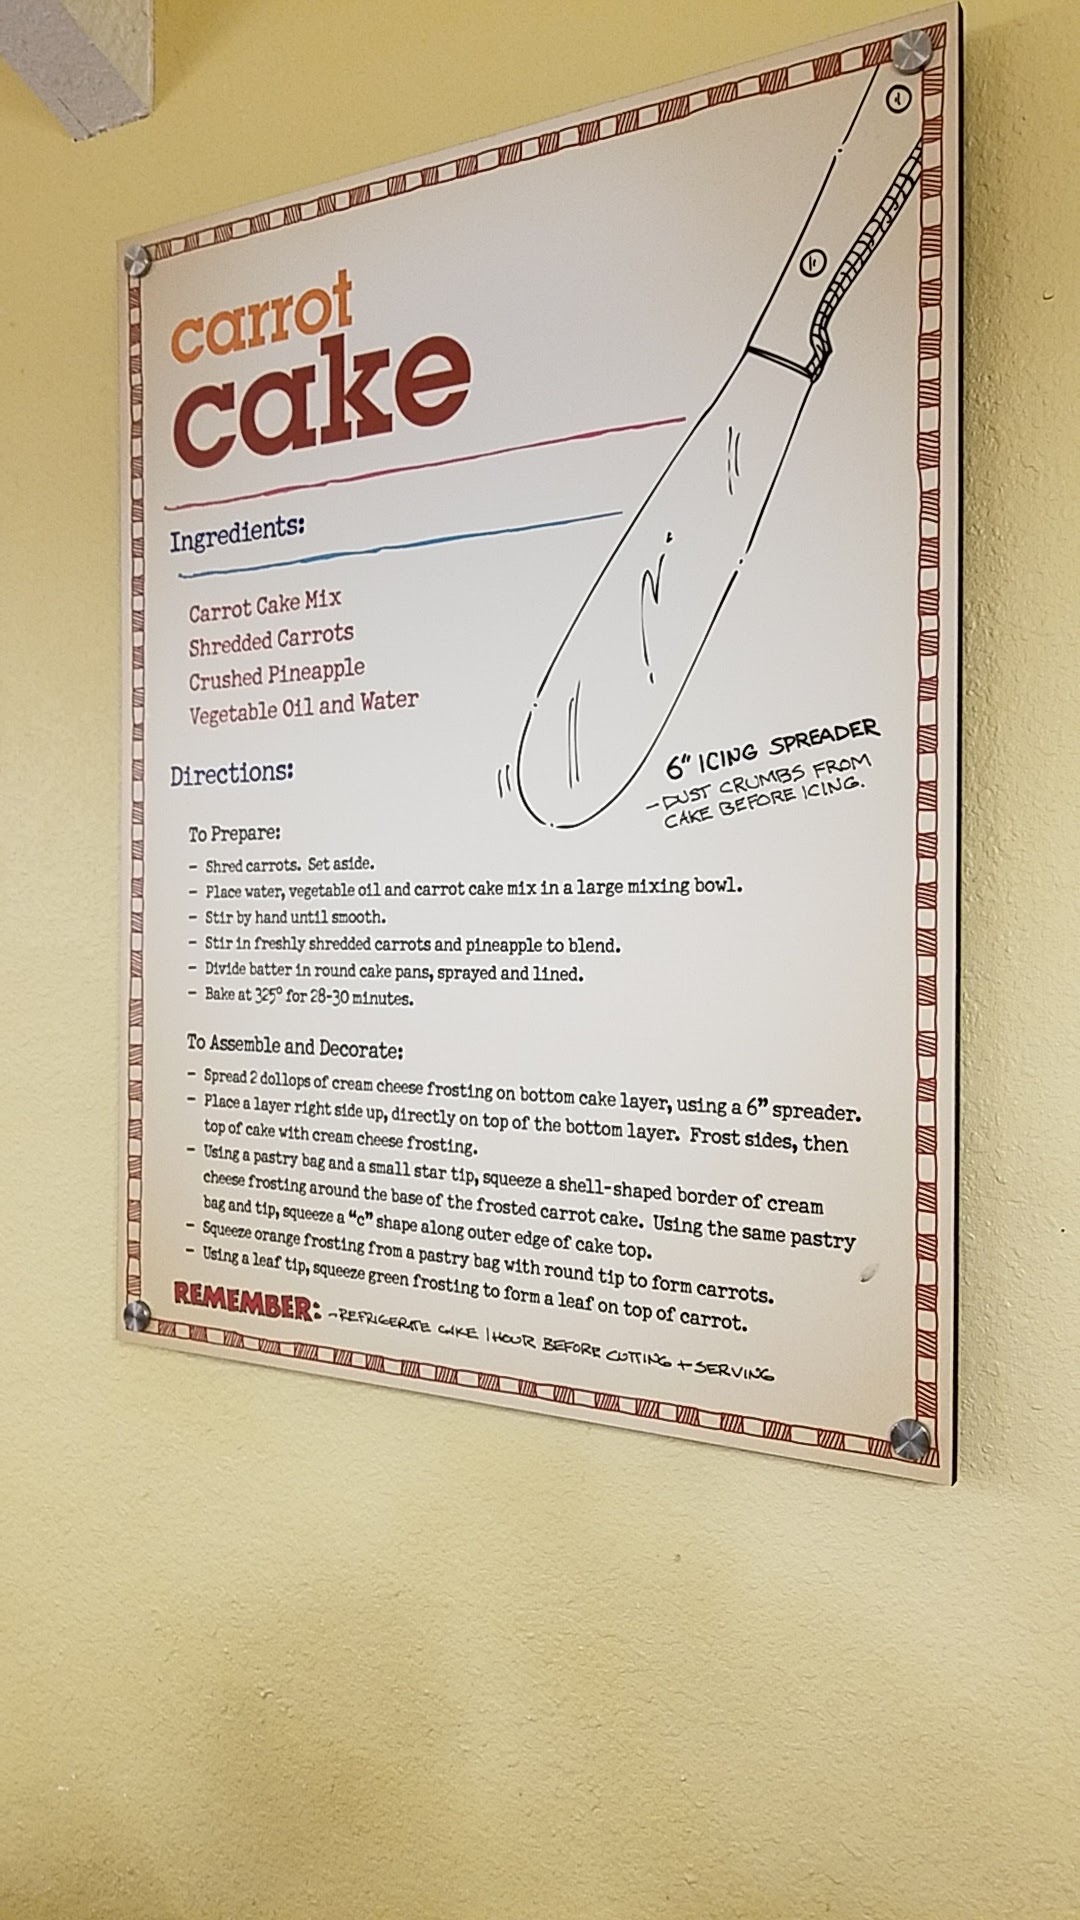 carrot
cake
Ingredients:
Carrot Cake Mix
Shredded Carrots
Crushed Pineapple
Vegetable Oil and Water
6" ICING SPREADER
- DUST CRUMBS FROM
CAKE BEFORE ICING.
Directions:
To Prepare:
- Shred carrots. Set aside.
- Place water, vegetable oil and carrot cake mix in a large mixing bowl.
- Stir by hand until smooth.
- Stir in freshly shredded carrots and pineapple to blend.
- Divide batter in round cake pans, sprayed and lined.
- Bake at 325° for 28-30 minutes.
To Assemble and Decorate:
- Spread 2 dollops of cream cheese frosting on bottom cake layer, using a 6" spreader.
- Place a layer right side up, directly on top of the bottom layer. Frost sides, then
top of cake with cream cheese frosting.
- Using a pastry bag and a small star tip, squeeze a shell-shaped border of cream
cheese frosting around the base of the frosted carrot cake. Using the same pastry
bag and tip, squeeze a "c" shape along outer edge of cake top.
- Squeeze orange frosting from a pastry bag with round tip to form carrots.
- Using a leaf tip, squeeze green frosting to form a leaf on top of carrot.
REMEMBER: - REFRIGERATE CAKE 1 HOUR BEFORE CUTTING + SERVING